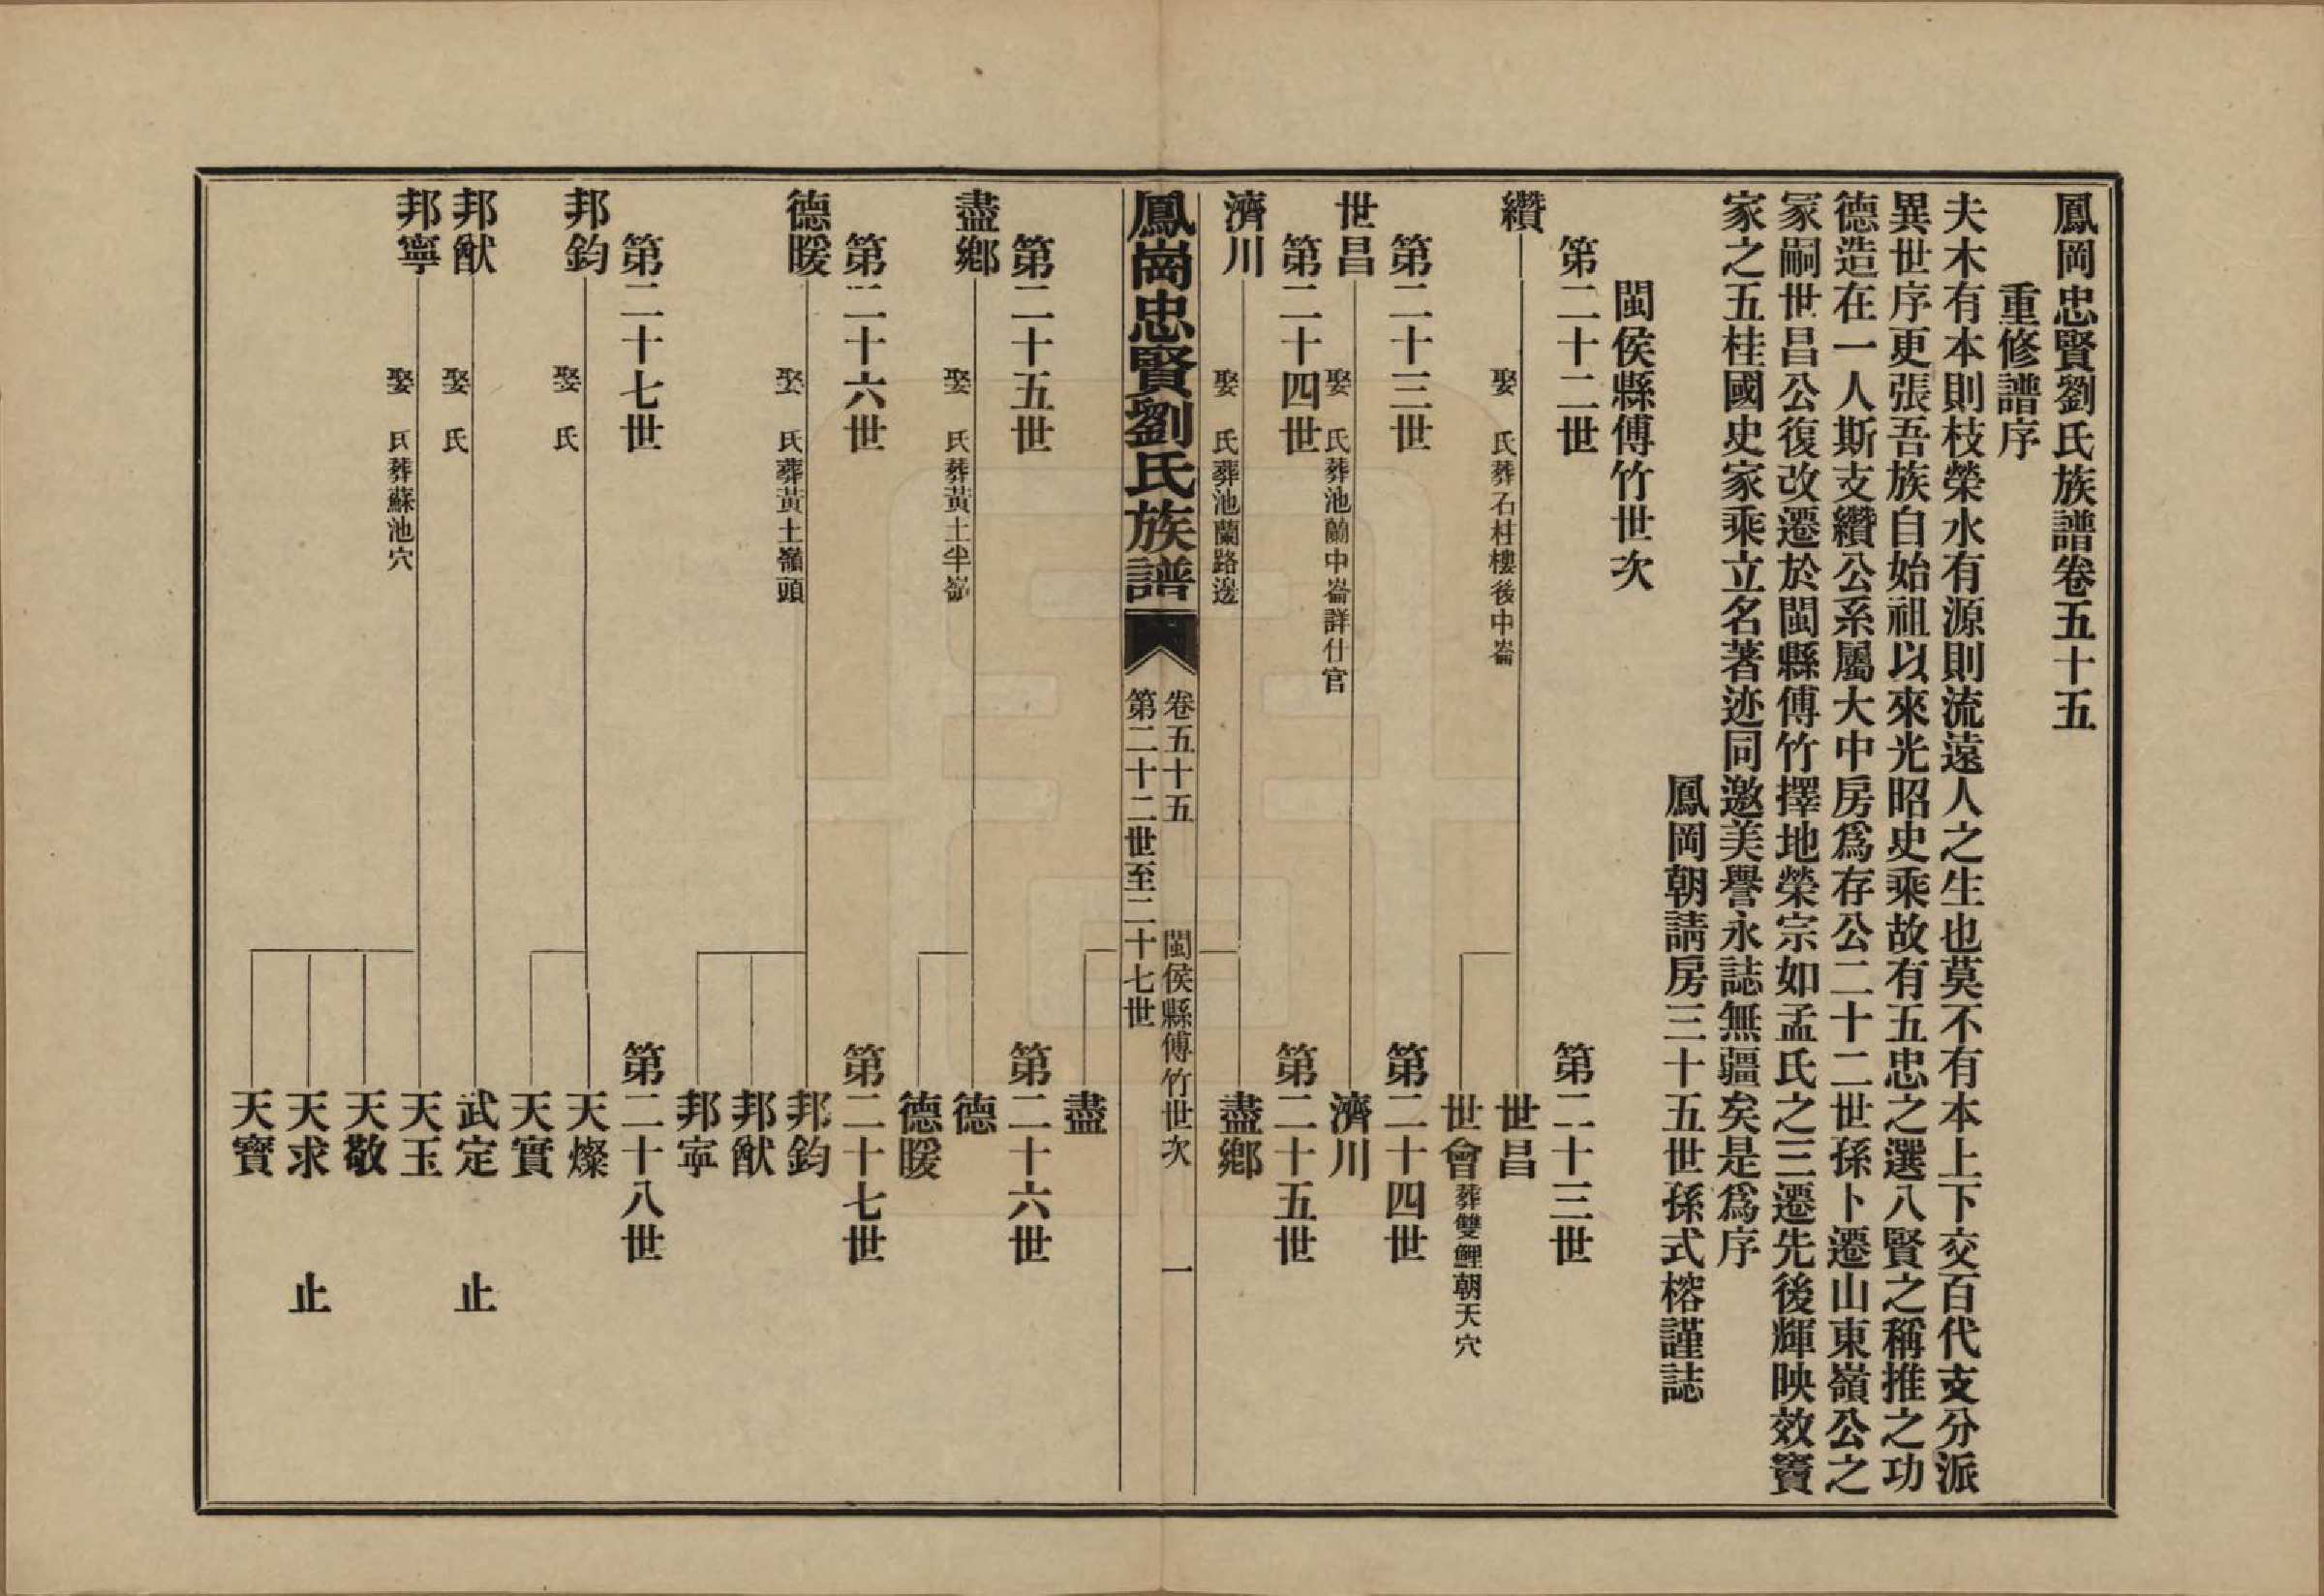 鳳岡忠賢劉氏族譜卷五十五
重修譜序
夫木有本則枝榮水有源則流遠人之生也莫不有本上下交百代支分派
異世序更張吾族自始祖以來光昭史乘故有五忠之選八賢之稱推之功
德造在一人斯支纘公系屬大中房爲存公二十二世孫卜遷山東嶺公之
冢嗣世昌公復改遷於閩縣傅竹擇地榮宗如孟氏之三遷先後輝映效竇
家之五桂國史家乘立名著迹同邀美譽永誌無疆矣是爲序
鳳岡朝請房三十五世孫式榕謹誌
閩侯縣傅竹世次
第二十二世
第二十三世
纘
娶 氏葬石柱樓後中崙
世昌
世會葬雙鯉朝天穴
第二十三世
第二十四世
世昌
娶 氏葬池蘭中崙詳仕官
濟川
第二十四世
第二十五世
濟川
娶 氏葬池蘭路邊
盡鄉
鳳崗忠賢劉氏族譜
卷五十五 閩侯縣傅竹世次 一
第二十二世至二十七世
盡
第二十五世
第二十六世
盡鄉
娶 氏葬黃土半嶺
德
德暖
第二十六世
第二十七世
德暖
娶 氏葬黃土嶺頭
邦鈞
邦猷
邦寧
第二十七世
第二十八世
邦鈞
娶 氏
天燦
天實
邦猷
娶 氏
武定 止
邦寧
娶 氏葬蘇池穴
天玉
天敬
天求 止
天寶